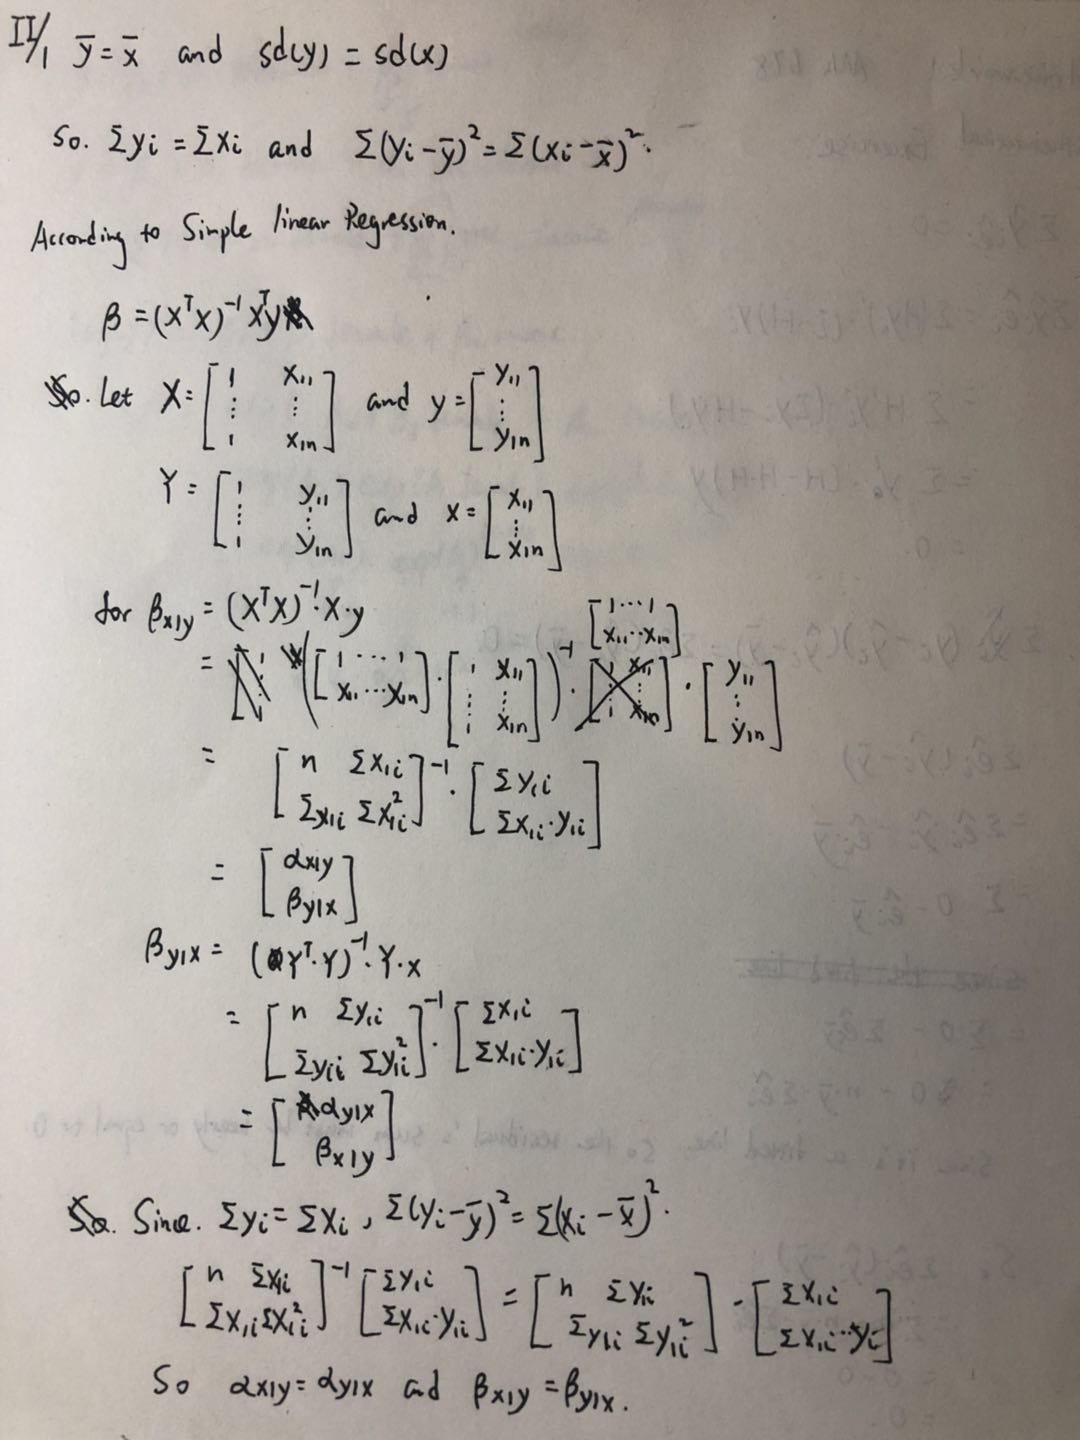 II/1 ȳ = x̄ and sd(y) = sd(x)
So. Σyi = Σxi and Σ(yi - ȳ)² = Σ(xi - x̄)².
According to Simple linear Regression.
β = (XᵀX)⁻¹Xᵀy
Let X = [1 x11 ⋮ ⋮ 1 x1n] and y = [y11 ⋮ y1n]
Y = [1 y11 ⋮ ⋮ 1 y1n] and x = [x11 ⋮ x1n]
for βx|y = (XᵀX)⁻¹·X·y
= ([1 ⋯ 1 x11 ⋯ x1n]·[1 x11 ⋮ ⋮ 1 x1n])⁻¹·[1 ⋯ 1 x11 ⋯ x1n]·[y11 ⋮ y1n]
= [n Σx1i Σx1i Σx1i²]⁻¹·[Σy1i Σx1i·y1i]
= [αx|y βy|x]
βy|x = (Yᵀ·Y)⁻¹·Y·x
= [n Σy1i Σy1i Σy1i²]⁻¹·[Σx1i Σx1i·y1i]
= [αy|x βx|y]
Since. Σyi = Σxi, Σ(yi - ȳ)² = Σ(xi - x̄)².
[n Σx1i Σx1i Σx1i²]⁻¹[Σy1i Σx1i·y1i] = [n Σy1i Σy1i Σy1i²]·[Σx1i Σx1i·yi]
So αx|y = αy|x ad βx|y = βy|x.